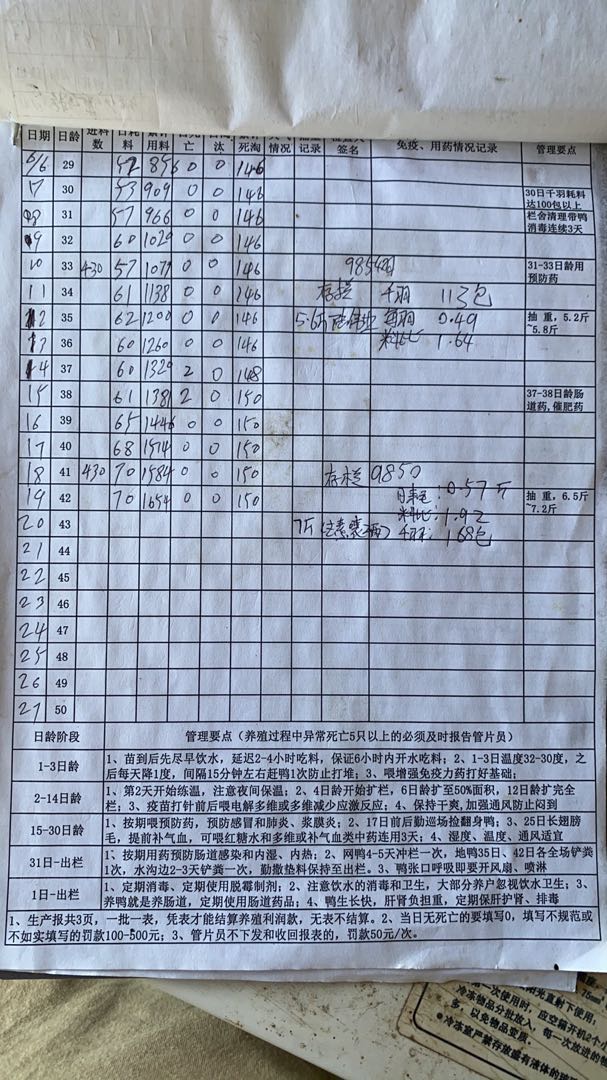 日期 日龄 进料数 日耗料 累计用料 日死亡 日淘汰 累计死淘 情况 记录 签名 免疫、用药情况记录 管理要点
6/6 29 52 856 0 0 146
17 30 53 909 0 0 146 30日千羽耗料达100包以上
31 57 966 0 0 146 栏舍清理带鸭消毒连续3天
32 60 1020 0 0 146
10 33 430 57 1077 0 0 146 9854羽 31-33日龄用预防药
11 34 61 1138 0 0 146 存栏 千羽 113包
12 35 62 1200 0 0 146 0.49 抽 重，5.2斤~5.8斤
13 36 60 1260 0 0 146 料比 1.64
14 37 60 1320 2 0 148
15 38 61 1381 2 0 150 37-38日龄肠道药,催肥药
16 39 65 1446 0 0 150
17 40 68 1514 0 0 150
18 41 430 70 1584 0 0 150 存栏 9850
19 42 70 1654 0 0 150 0.57斤 抽 重，6.5斤~7.2斤
料比：1.92
20 43 7斤 千羽：168包
21 44
22 45
23 46
24 47
25 48
26 49
27 50
日龄阶段 管理要点（养殖过程中异常死亡5只以上的必须及时报告管片员）
1-3日龄 1、苗到后先尽早饮水，延迟2-4小时吃料，保证6小时内开水吃料；2、1-3日温度32-30度，之
后每天降1度，间隔15分钟左右赶鸭1次防止打堆；3、喂增强免疫力药打好基础；
2-14日龄 1、第2天开始练温，注意夜间保温；2、4日龄开始扩栏，6日龄扩至50%面积，12日龄扩完全
栏；3、疫苗打针前后喂电解多维或多维减少应激反应；4、保持干爽,加强通风防止闷到
15-30日龄 1、按期喂预防药，预防感冒和肺炎、浆膜炎；2、17日前后勤巡场捡翻身鸭；3、25日长翅膀
毛，提前补气血，可喂红糖水和多维或补气血类中药连用3天；4、湿度、温度、通风适宜
31日-出栏 1、按期用药预防肠道感染和内湿、内热；2、网鸭4-5天冲栏一次，地鸭35日、42日各全场铲粪
1次，水沟边2-3天铲粪一次，勤撒垫料保持至出栏。3、鸭张口呼吸即要开风扇、喷淋
1日-出栏 1、定期消毒、定期使用脱霉制剂；2、注意饮水的消毒和卫生，大部分养户忽视饮水卫生；3、
养鸭就是养肠道，定期使用肠道药品；4、鸭生长快，肝肾负担重，定期保肝护肾、排毒
1、生产报共3页，一批一表，凭表才能结算养殖利润款，无表不结算。2、当日无死亡的要填写0，填写不规范或
不如实填写的罚款100-500元；3、管片员不下发和收回报表的，罚款50元/次。
第一次使用时，应空箱开机2个小
冷冻物品分批放入，每一次放进的物
多，以免物品变质。
●冷冻室严禁存放盛有液体的玻